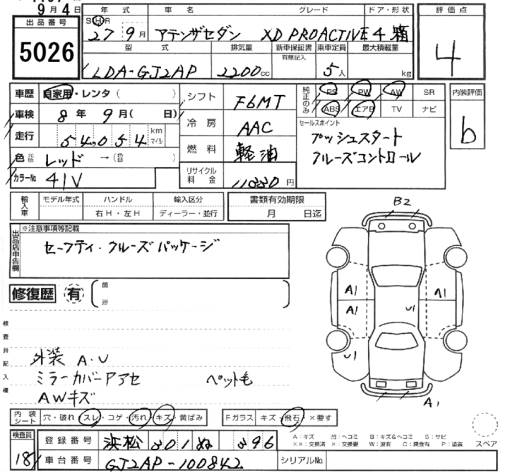 9月4日
出品番号
5026
年式 車名 グレード ドア・形状
27年9月 アテンザセダン XD PROACTIVE 4 箱
型式 排気量 新車保証書 乗車定員 最大積載量
有無記入
LDA-GJ2AP 2200cc 5人 kg
評価点
4
車歴 自家用・レンタ( )
車検 8年9月( 日)
走行 54,054 km マイル
色 レッド →( )
カラーNo 41V
シフト F6MT
冷房 AAC
燃料 軽油
リサイクル料金
純正のみ PS PW AW SR
ABS エアB TV ナビ
セールスポイント
プッシュスタート
クルーズコントロール
内装評価
b
輸入車 モデル年式 ハンドル 輸入区分
右H・左H ディーラー・並行
書類有効期限
月 日迄
出品店申告欄
※注意事項等記載
セーフティ・クルーズパッケージ
修復歴 有
検査員記入欄
外装 A・U
ミラーカバーアセ ペット毛
AWキズ
B2
A1
A1
U1
A1
内装シート 穴・破れ スレ・コゲ・汚れ・キズ・黄ばみ
Fガラス キズ・飛石・×要す
スペア
検査員
18
登録番号 浜松 301 ぬ 396
車台番号 GJ2AP-100842
シリアルNo.
A:キズ